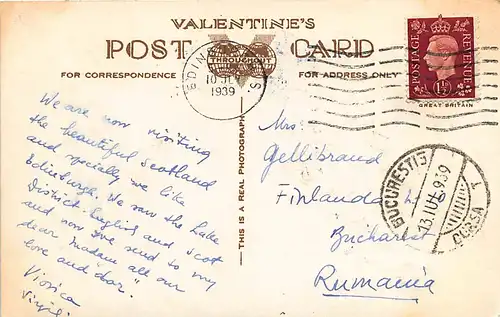 VALENTINE'S
POST CARD
THROUGHOUT
FOR CORRESPONDENCE
FOR ADDRESS ONLY
POSTAGE
REVENUE
1½
GREAT BRITAIN
EDIN
S
1939
BUCURESTI
CURSA
THIS IS A REAL PHOTOGRAPH
We are now visiting
the beautiful Scotland
and specially we like
Edinburgh. We saw the Lake
District English and Scot
and now we send to my
dear Madam all our
love and "dor".
Viorica
Mrs.
Gellibrand
Finlanda
Bucharest
Rumania